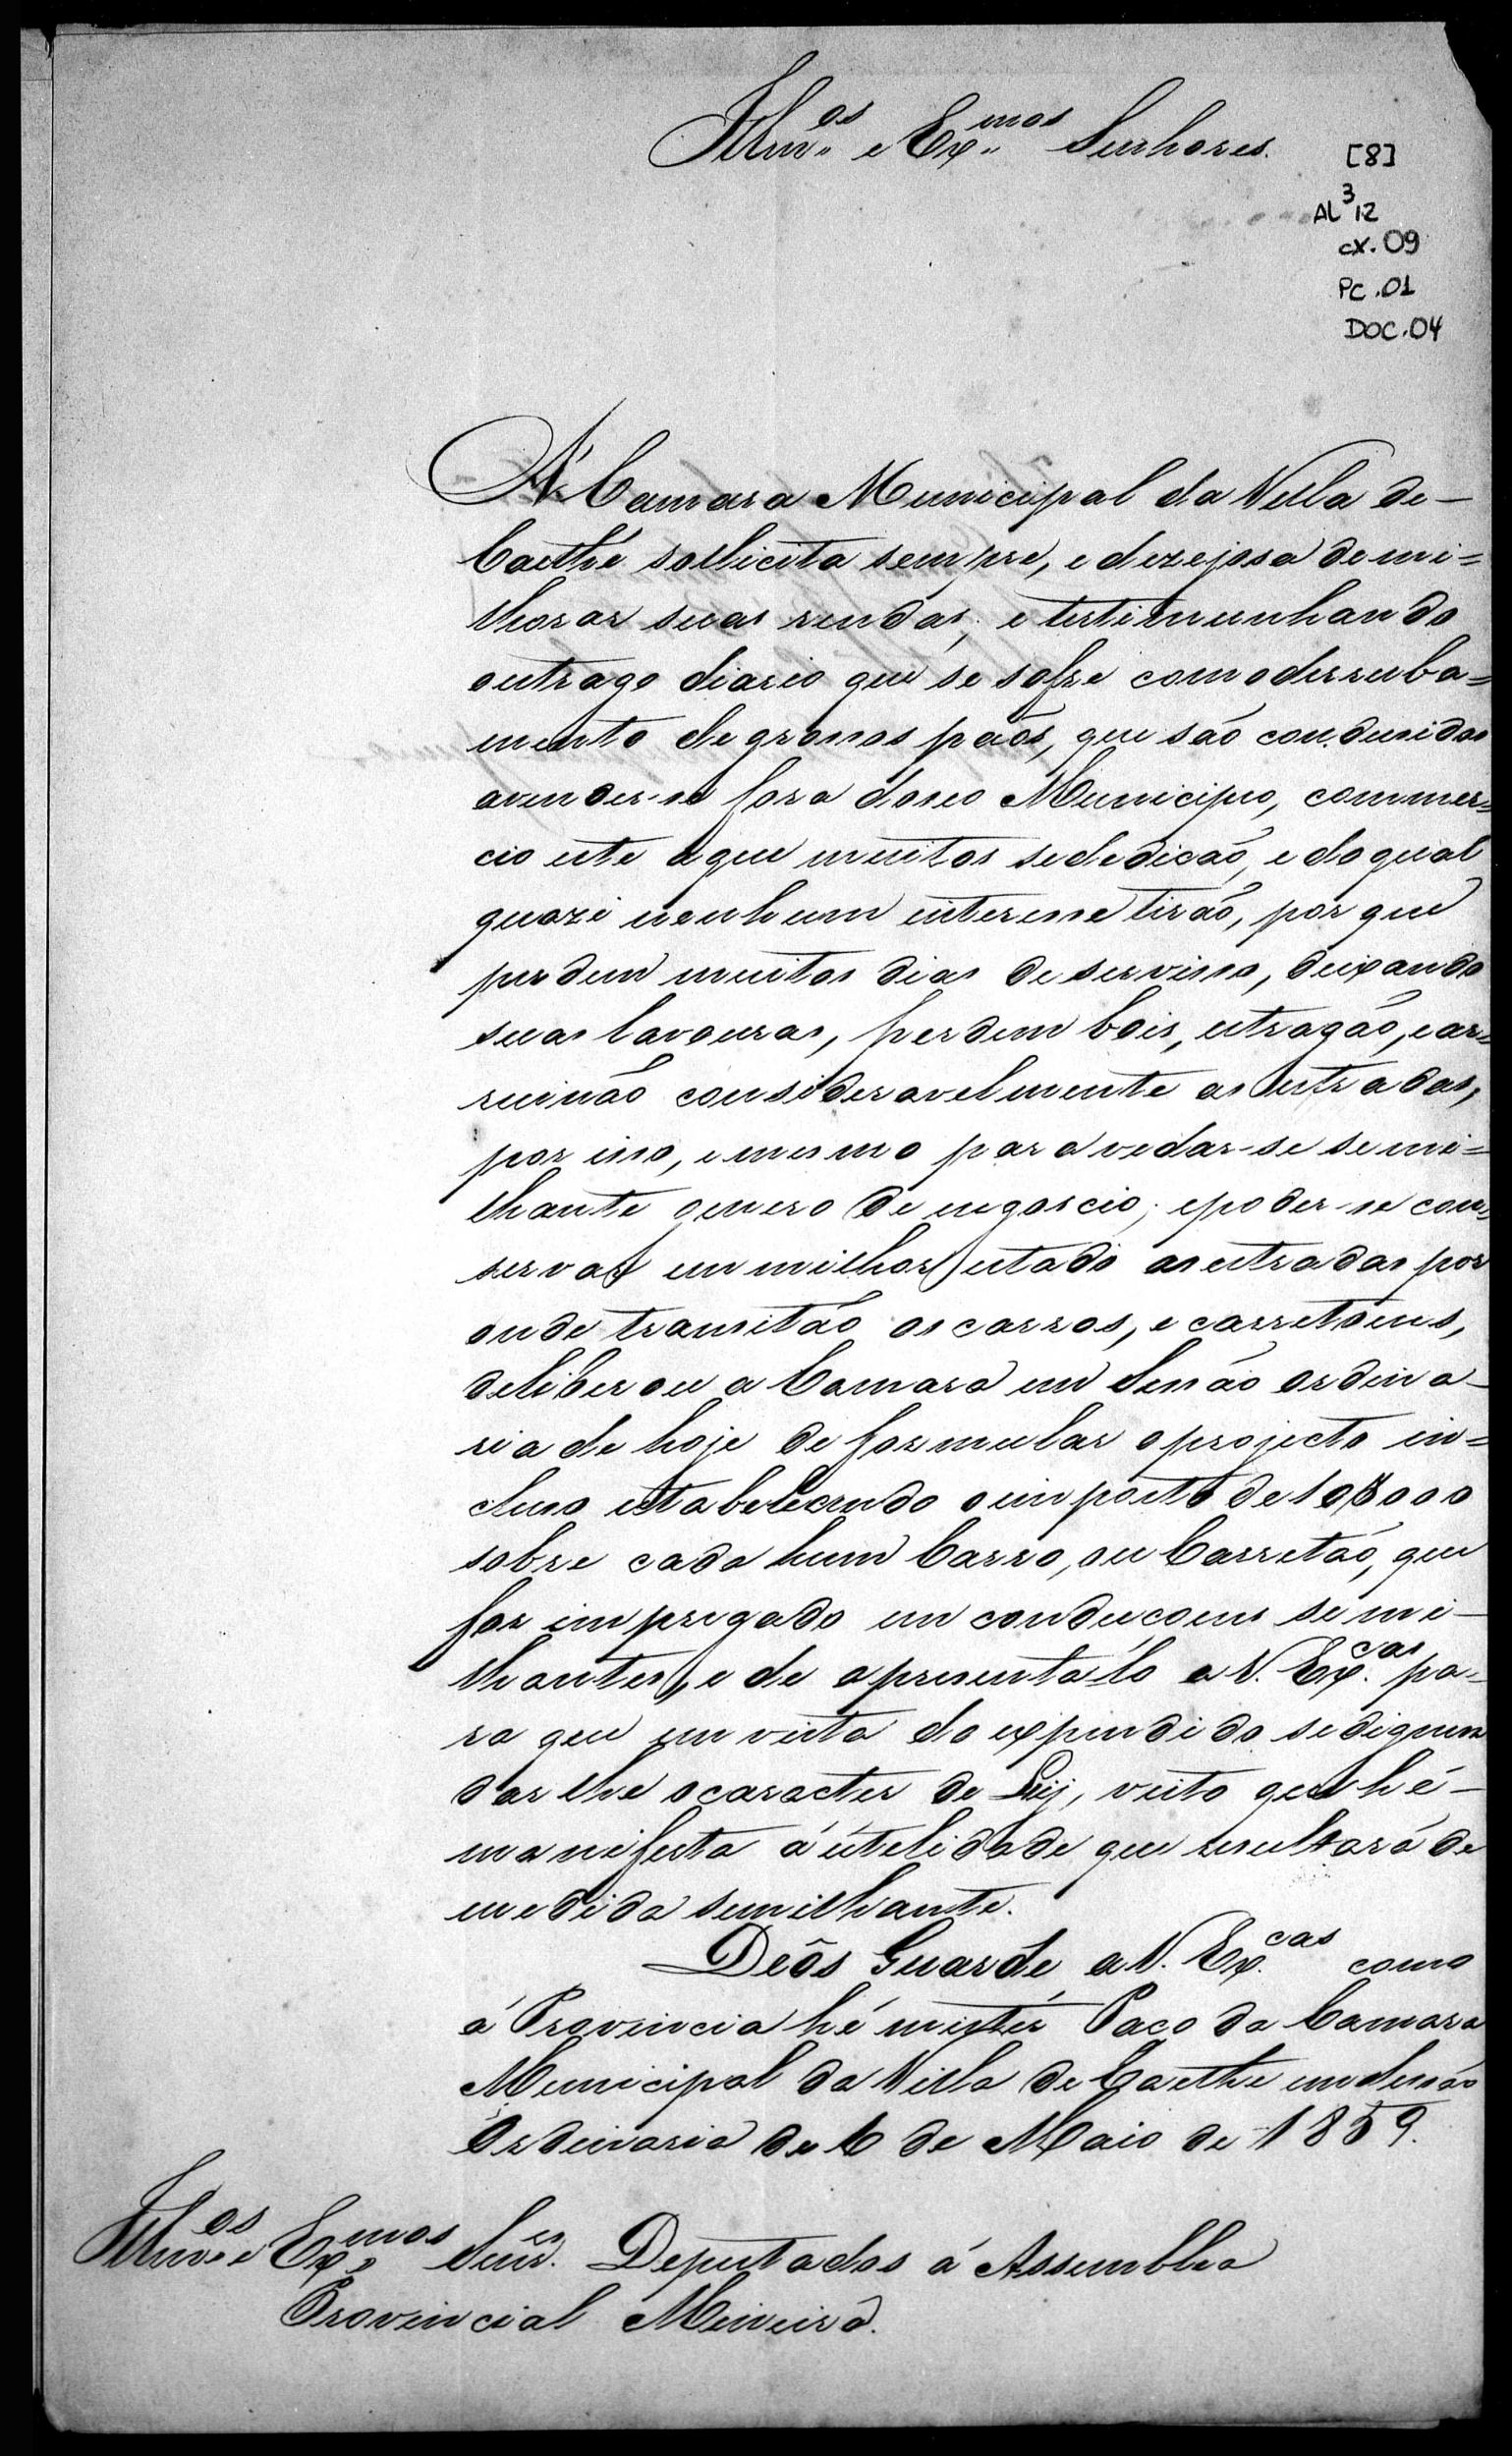 Illm.os e Ex.mos Senhores.
[8]
AL 3 12
cx. 09
PC .01
DOC.04
A Camara Municipal da Villa de
Caethé sollicita sempre, e dezejosa de mi=
lhorar suas rendas; e testimunhando
outrago diario que se sofre com o derruba=
mento de grossos páos, que são condusidos
a vender-se fora do seo Municipio, commer=
cio este a que muitos se dedicão, e do qual
quazi nenhum interesse tirão, por que
perdem muitos dias de servisso, deixando
suas lavouras, perdem bois, estragão, e ar=
ruinão consideravelmente as estradas,
por isso, e mesmo para vedar-se semi=
lhante genero de negoscio, e poder-se con=
servar em milhor estado as estradas por
onde transitão os carros, e carretoens,
deliberou a Camara em Sessão Ordina-
ria de hoje de formular o projecto in=
cluso estabelecendo o imposto de 10$000
sobre cada hum Carro, ou Carretão, que
for impregado em conducoens semi-
lhantes, e de apresentalo a V. Ex.cas pa=
ra que em vista do expendido se dignem
dar lhe o caracter de Leij, visto que hé
manifesta a utelidade que resultará de
medida semilhante.
Deôs Guarde a V. Ex.cas como
á Provincia hé mistér Paço da Camara
Municipal da Villa de Caethe em Sessão
Ordinaria de 6 de Maio de 1859.
Illm.os e Ex.mos Senr.es Deputados á Assemblea
Provincial Mineira.